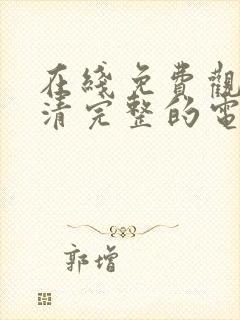 在綫免費觀
清完整的電
郭增